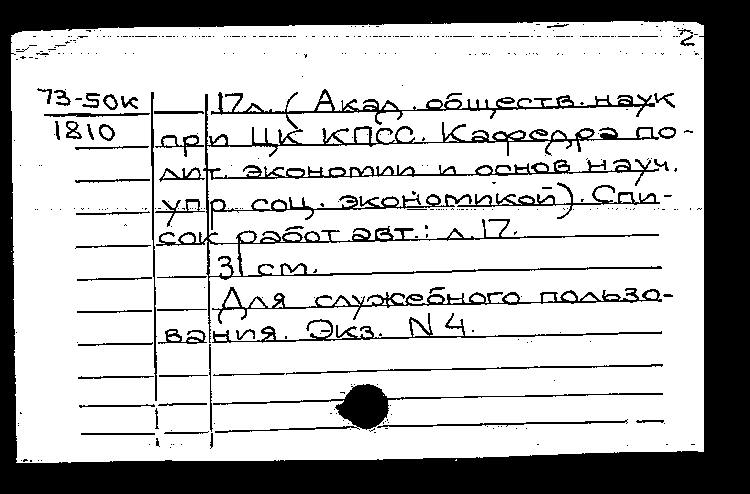 2
73-50к
1810
17л. (Акад. обществ. наук
при ЦК КПСС. Кафедра по-
лит. экономии и основ науч.
упр. соц. экономикой). Спи-
сок работ авт.: л.17.
31 ст.
Для служебного пользо-
вания. Экз. N 4.